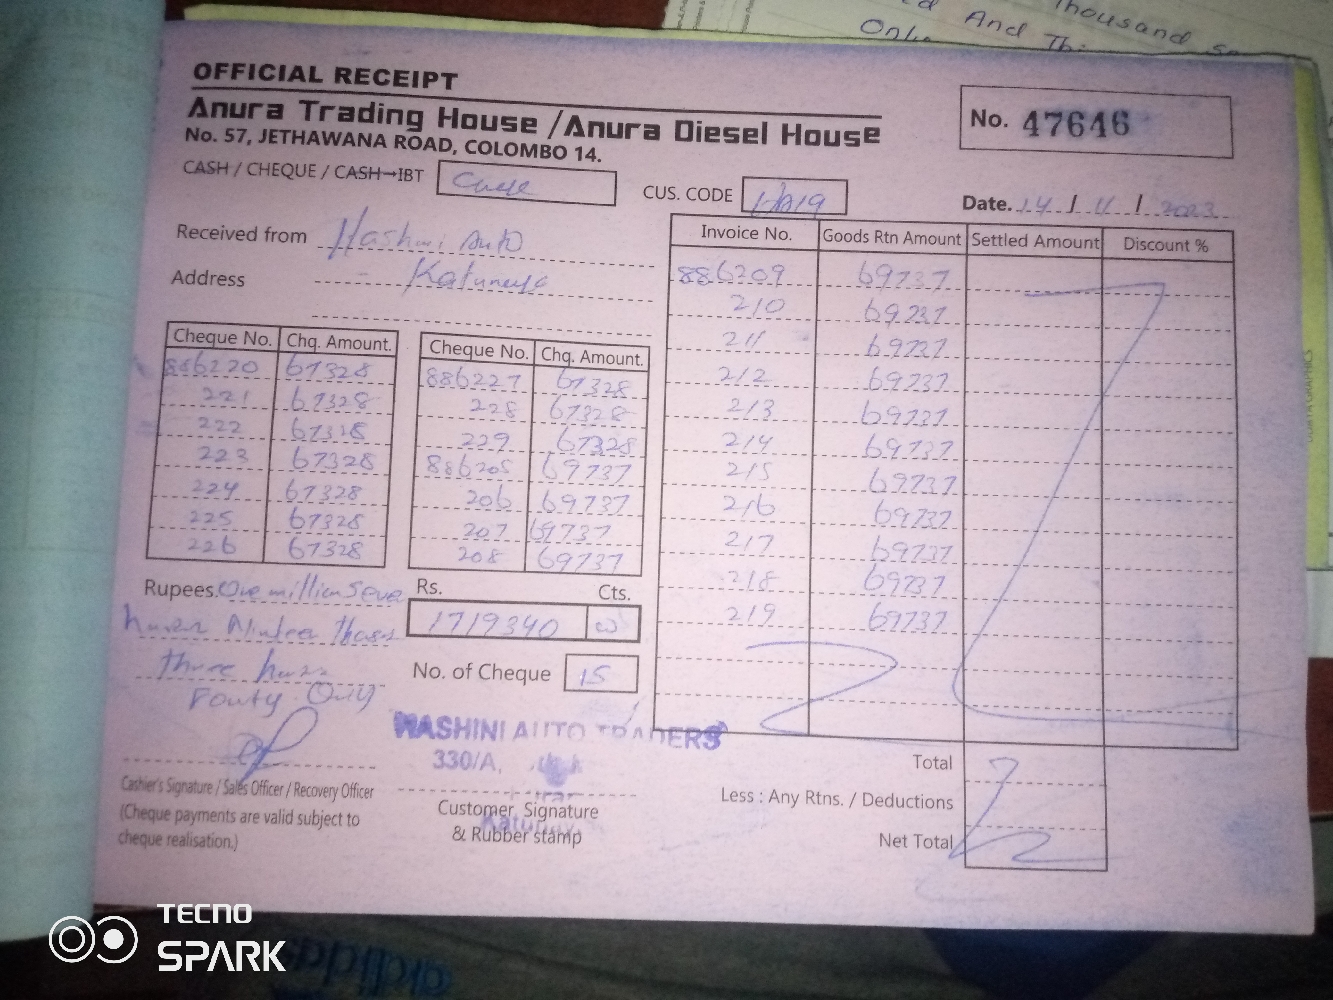 Thousand
And Thi
Only
OFFICIAL RECEIPT
Anura Trading House / Anura Diesel House
No. 57, JETHAWANA ROAD, COLOMBO 14.
No. 47646
CASH / CHEQUE / CASH→IBT
CUS. CODE
Date. 14 / 11 / 2023
Received from Hashini Auto
Address
Cheque No. Chq. Amount.
886220 67328
221 67328
222 67328
223 67328
224 67328
225 67328
226 67328
Cheque No. Chq. Amount.
886227 67328
228 67328
229 67328
886205 69737
206 69737
207 69737
208 69737
Invoice No. Goods Rtn Amount Settled Amount Discount %
886209 69737
210 69737
211 69737
212 69737
213 69737
214 69737
215 69737
216 69737
217 69737
218 69737
219 69737
Rupees. One million Seve
three
Fouty Only
Rs. Cts.
1719340
No. of Cheque 15
WASHINI AUTO TRADERS
330/A,
Cashier's Signature / Sales Officer / Recovery Officer
(Cheque payments are valid subject to
cheque realisation.)
Customer Signature
& Rubber stamp
Total
Less : Any Rtns. / Deductions
Net Total
TECNO
SPARK